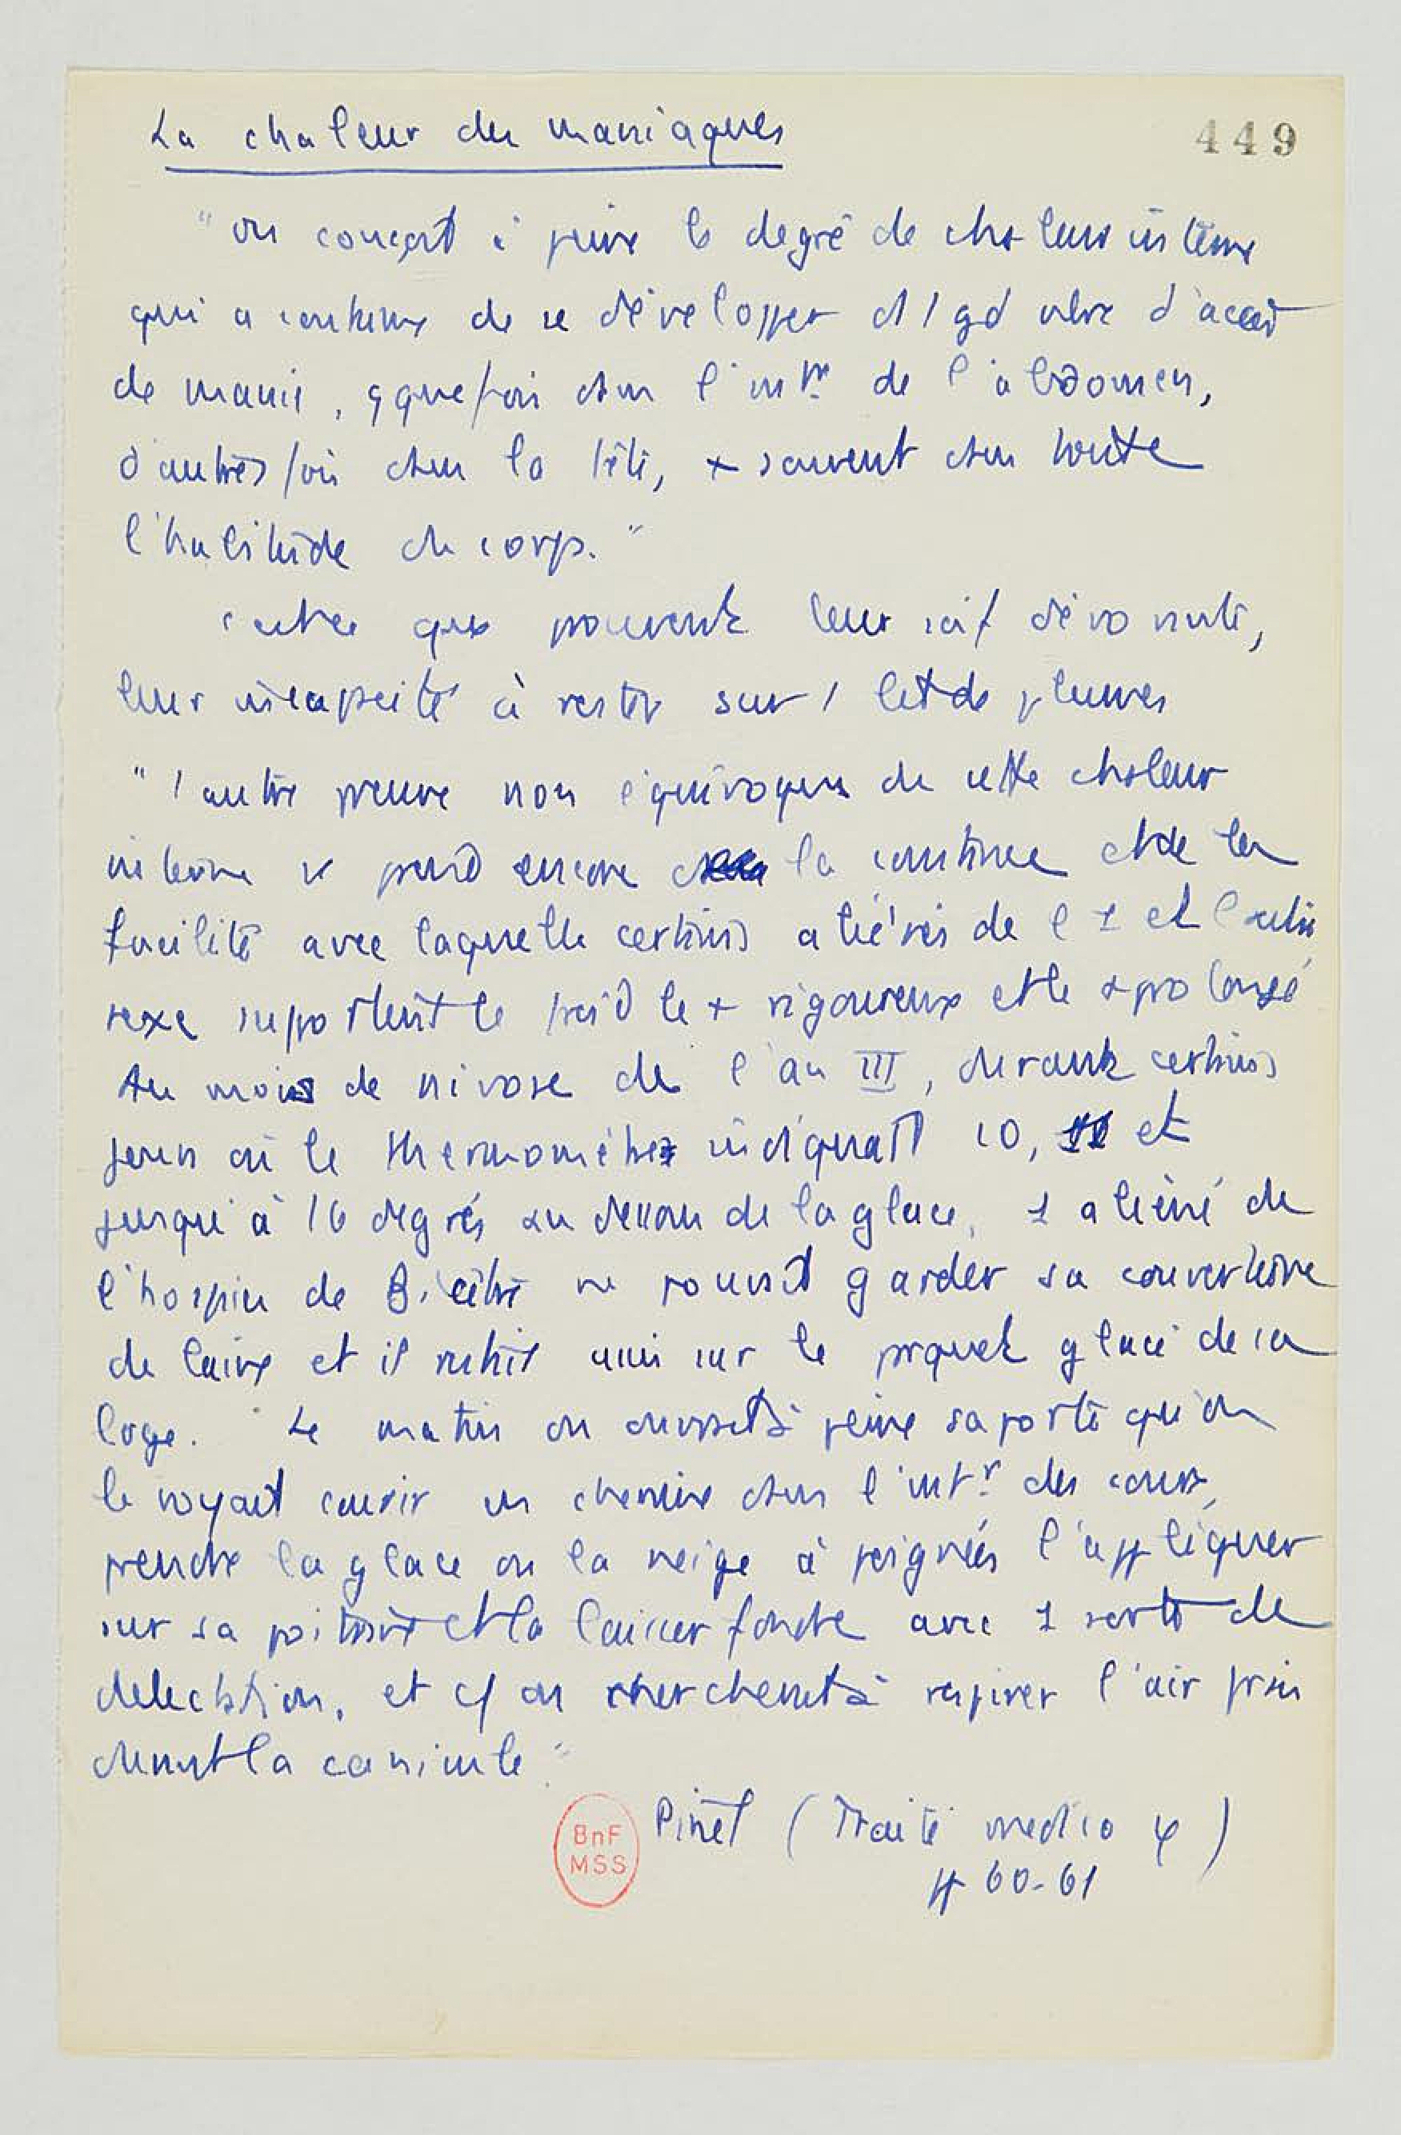 La chaleur des maniaques
449
"on conçoit à peine le degré de chaleur interne
qui a coutume de se développer ds 1 gd nbre d'accès
de manie, qquefois dans l'intr de l'abdomen,
d'autres fois dans la tête, + souvent dans toute
l'habitude du corps."
que prouvent leur soif dévorante,
leur incapacité à rester sur 1 lit de plumes
"1 autre preuve non équivoque de cette chaleur
interne se prend encore de la constance et de la
facilité avec laquelle certains aliénés de l'1 et l'autre
sexe supportent le froid le + rigoureux et le + prolongé
Au mois de nivose de l'an III, durant certains
jours où le thermomètre indiquait 10, 11 et
jusqu'à 16 degrés au dessous de la glace, 1 aliéné de
l'hospice de Bicêtre ne pouvait garder sa couverture
de laine et il restait assis sur le parquet glacé de sa
loge. Le matin on ouvrait à peine sa porte qu'on
le voyait courir en chemise dans l'intr des cours,
prendre la glace ou la neige à poignées l'appliquer
sur sa poitrine et la laisser fondre avec 1 sorte de
delectation, et cf on cherchent à respirer l'air frais
durant la canicule"
BnF
MSS
Pinel (Traité medico φ)
pp 60-61